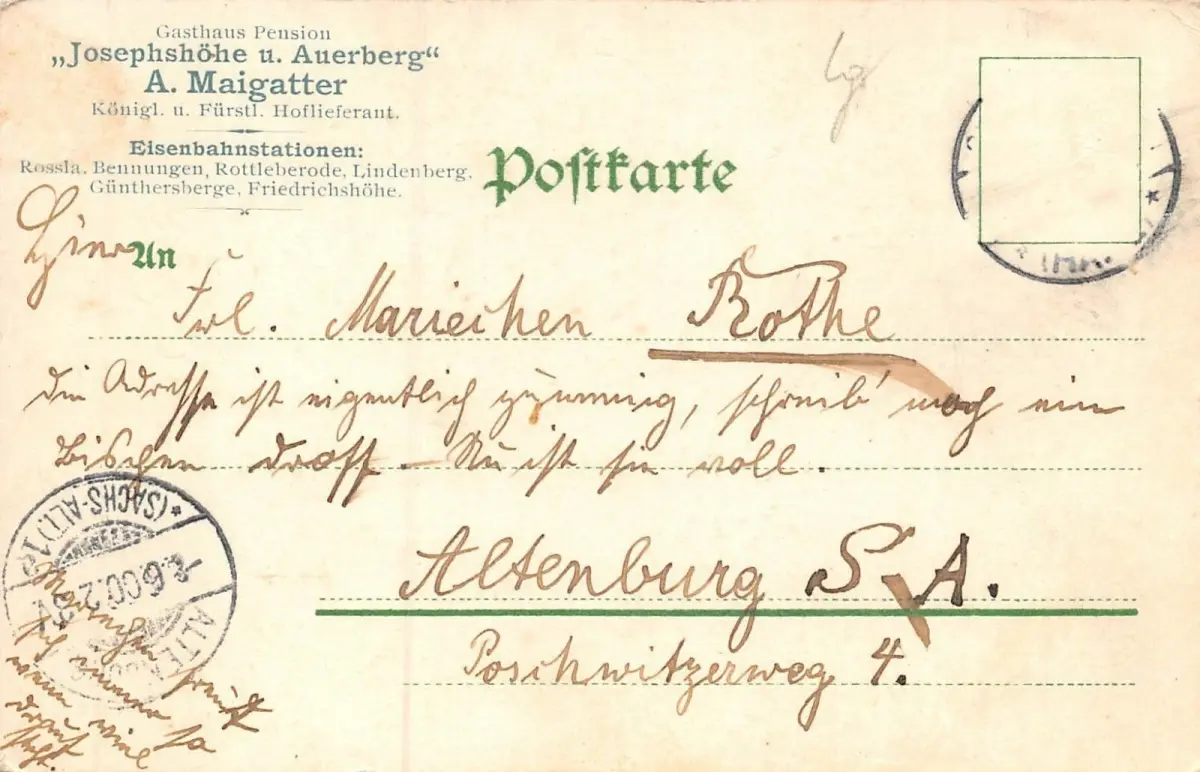 Gasthaus Pension
„Josephshöhe u. Auerberg“
A. Maigatter
Königl. u. Fürstl. Hoflieferant.
Eisenbahnstationen:
Rossla, Bennungen, Rottleberode, Lindenberg,
Günthersberge, Friedrichshöhe.
Postkarte
An
Frl. Mariechen Rothe
die Adresse ist eigentlich, schreib' noch ein
Bischen drauf – Nu ist sie voll.
Altenburg S. A.
Poschwitzerweg 4.
(SACHS-ALT.)
6.00.
Mariechen freut
sich immer so
wenn viel
drauf
steht.